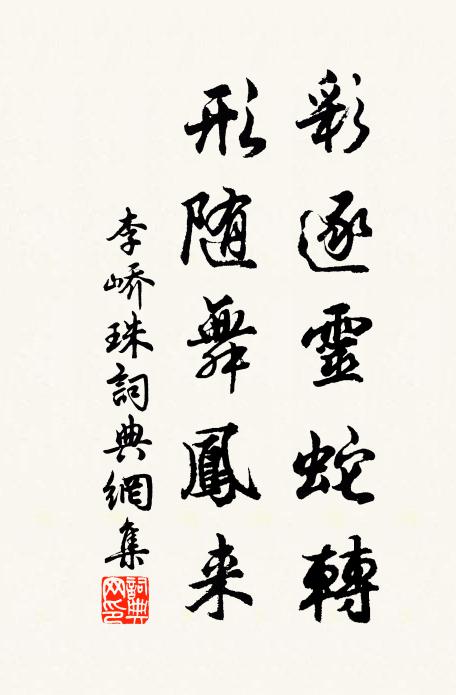 彩逐靈蛇轉
形随舞鳳来
李嶠珠詞典網集
詞典网印